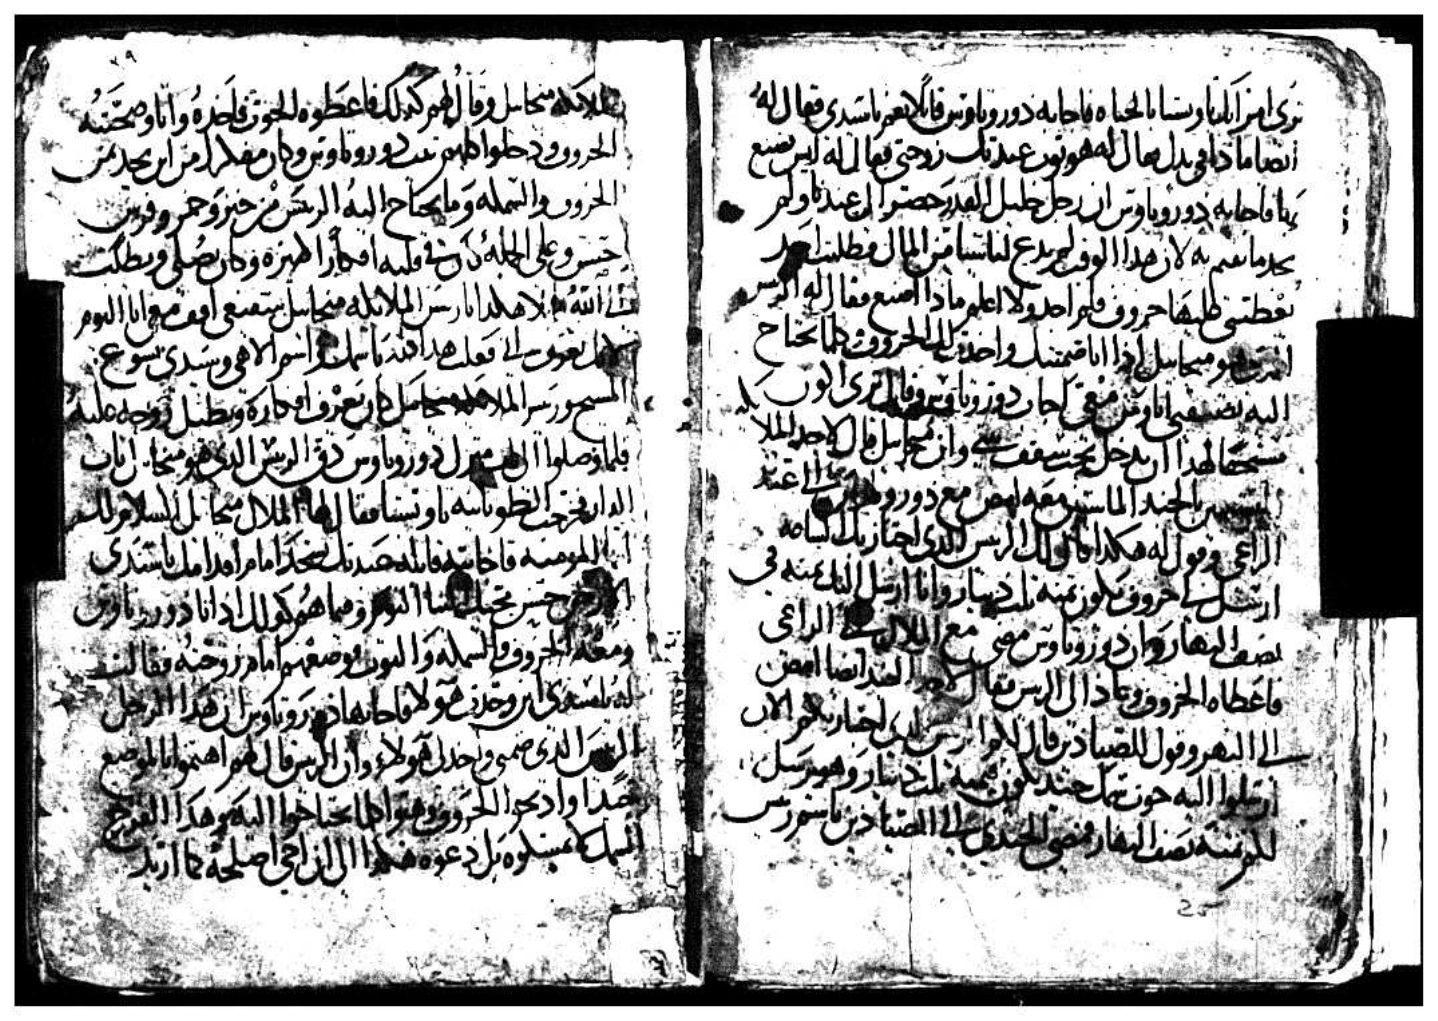 ترى امراتك تاوبستا بالحياه فاجابه دوروتاوس قايلا نعم ياسيدي فقال له
ايضا ماذا في يدك فقال له هو ثوب عند تلك زوجتي فقال له ايش تصنع
بهذا فاجابه دوروتاوس ان رجل جليل القدر حضر الى عندنا ولم
نجد ما نهتم به لان هذا الوقت لم يدع لنا شيا من المال فطلبت احد
يعطيني طلبها خروف فلم اجد ولا اعلم ماذا اصنع فقال له الريس
الذي هو ميخاييل اذا انا ضمنتك واخذت لك الخروف وكلما تحتاج
اليه تضيفني انا ومن معي اجاب دوروتاوس وقال ترى اكون
مستحقا لهذا ان تدخل تحت سقف بيتي وان ميخاييل قال لاحد الملا
الجند الماشيين معه امض مع دوروتاوس الى عند
الراعي وقول له هكذا قال لك الريس الذي اجتاز بك الساعه
ارسل لي خروف يكون ثمنه ثلث دينار وانا ارسل اليك ثمنه في
نصف النهار وان دوروتاوس مضى مع الملاك الى الراعي
فاعطاه الخروف وعاد الى الريس فقال لاحد الجند ايضا امض
الى النهر وقول للصيادين قال لكم الريس الذي اجتاز بكم الان
ارسلوا اليه حوت سمك جيد يكون ثمنه ثلث دينار وهو يرسل
لكم ثمنه نصف النهار فمضى الجندي الى الصيادين باسم ريس
٧٩
الملايكه ميخاييل وقال لهم كذلك فاعطوه الحوت فاخذه واتا وصحبته
الخروف ودخلوا كلهم بيت دوروتاوس وكان مفكرا من اين يجد ثمن
الخروف والسمكه وما يحتاج اليه الريس من خبز وخمر وفرش
حسن وعلى الجمله كانت في قلبه افكارا كثيره وكان يصلي ويطلب
الى الله قايلا هكذا يا ريس الملايكه ميخاييل شفيعي اوقف معي انا اليوم
لانك تعرف اني فعلت هذا كله باسمك واسم الاهي وسيدي يسوع
المسيح وريس الملايكه ميخاييل كان يعرف افكاره ويطيل روحه عليه
فلما وصلوا الى منزل دوروتاوس دق الريس الذي هو ميخاييل باب
الدار فخرجت الطوباسه تاوبستا فقال لها الملاك ميخاييل السلام لك
ايتها المومنه فاجابته قايله عبدتك تسجد امام اقدامك ياسيدي
الاراخن حسن مجيك الينا اليوم وفيما هم كذلك اذ اتا دوروتاوس
ومعه الخروف والسمكه والثوب فوضعهم امام زوجته فقالت
له ياسيدي اين وجدت هولا فاجابها دوروتاوس ان هذا الرجل
الريس الذي ضمني واخذ لي هولاء وان الريس قال لهم اهتموا بالموضع
جيدا واذبحوا الخروف وهيوا كلما تحتاجوا اليه وهذا الفرخ
السمك لا تمسكوه بل دعوه هكذا الى ان اجي اصلحه كما اريد